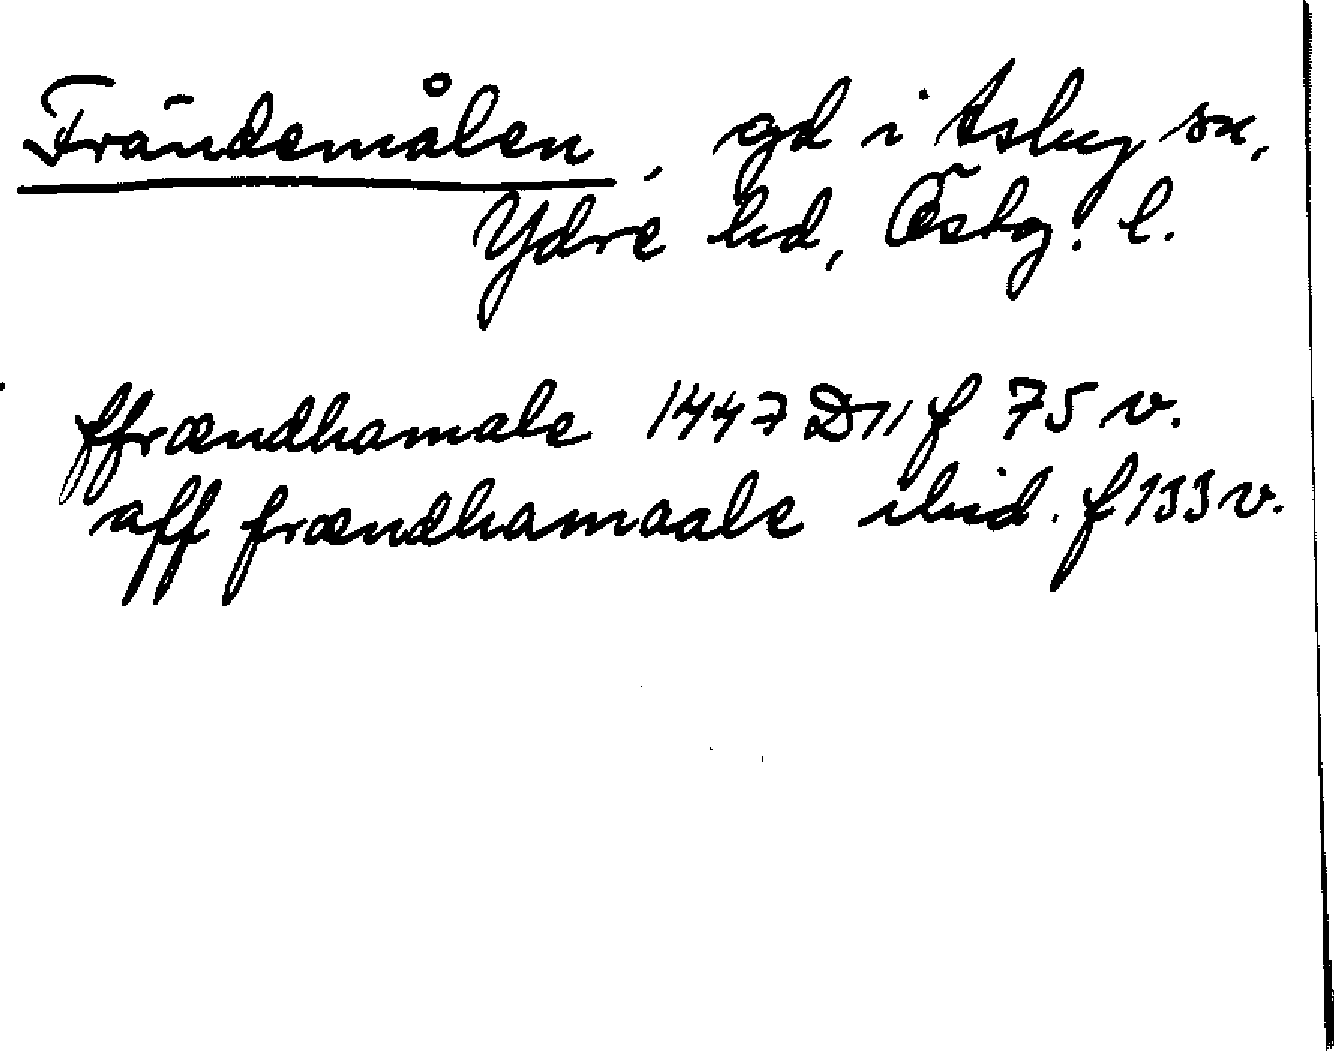 Frändemålen, gd i Asby sn,
Ydre hd, Östg. l.
ffrændhamale 1447 D11 f 75 v.
aff frændhamaale ibid. f 133 v.